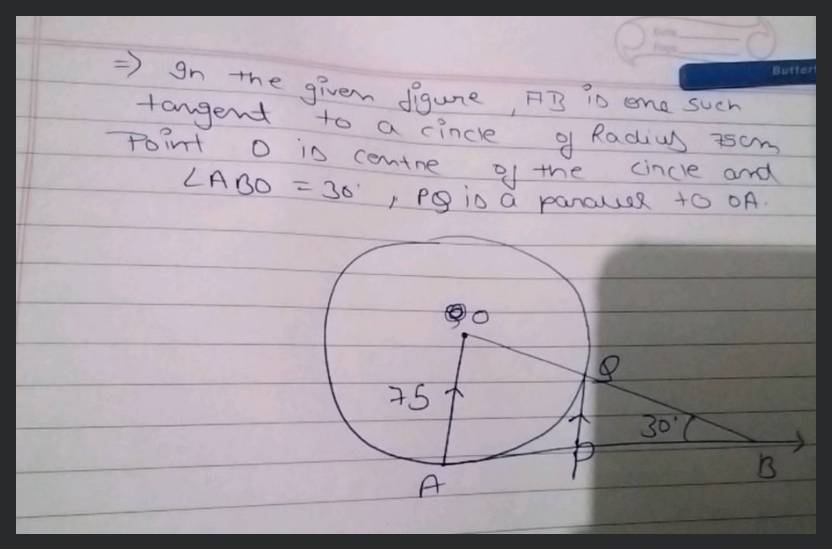 Butter
⇒ In the given figure, AB is one such
tangent to a circle of Radius 75cm
Point O is centre of the circle and
∠ABO = 30°, PQ is a parallel to OA.
O
Q
75
30°
P
B
A